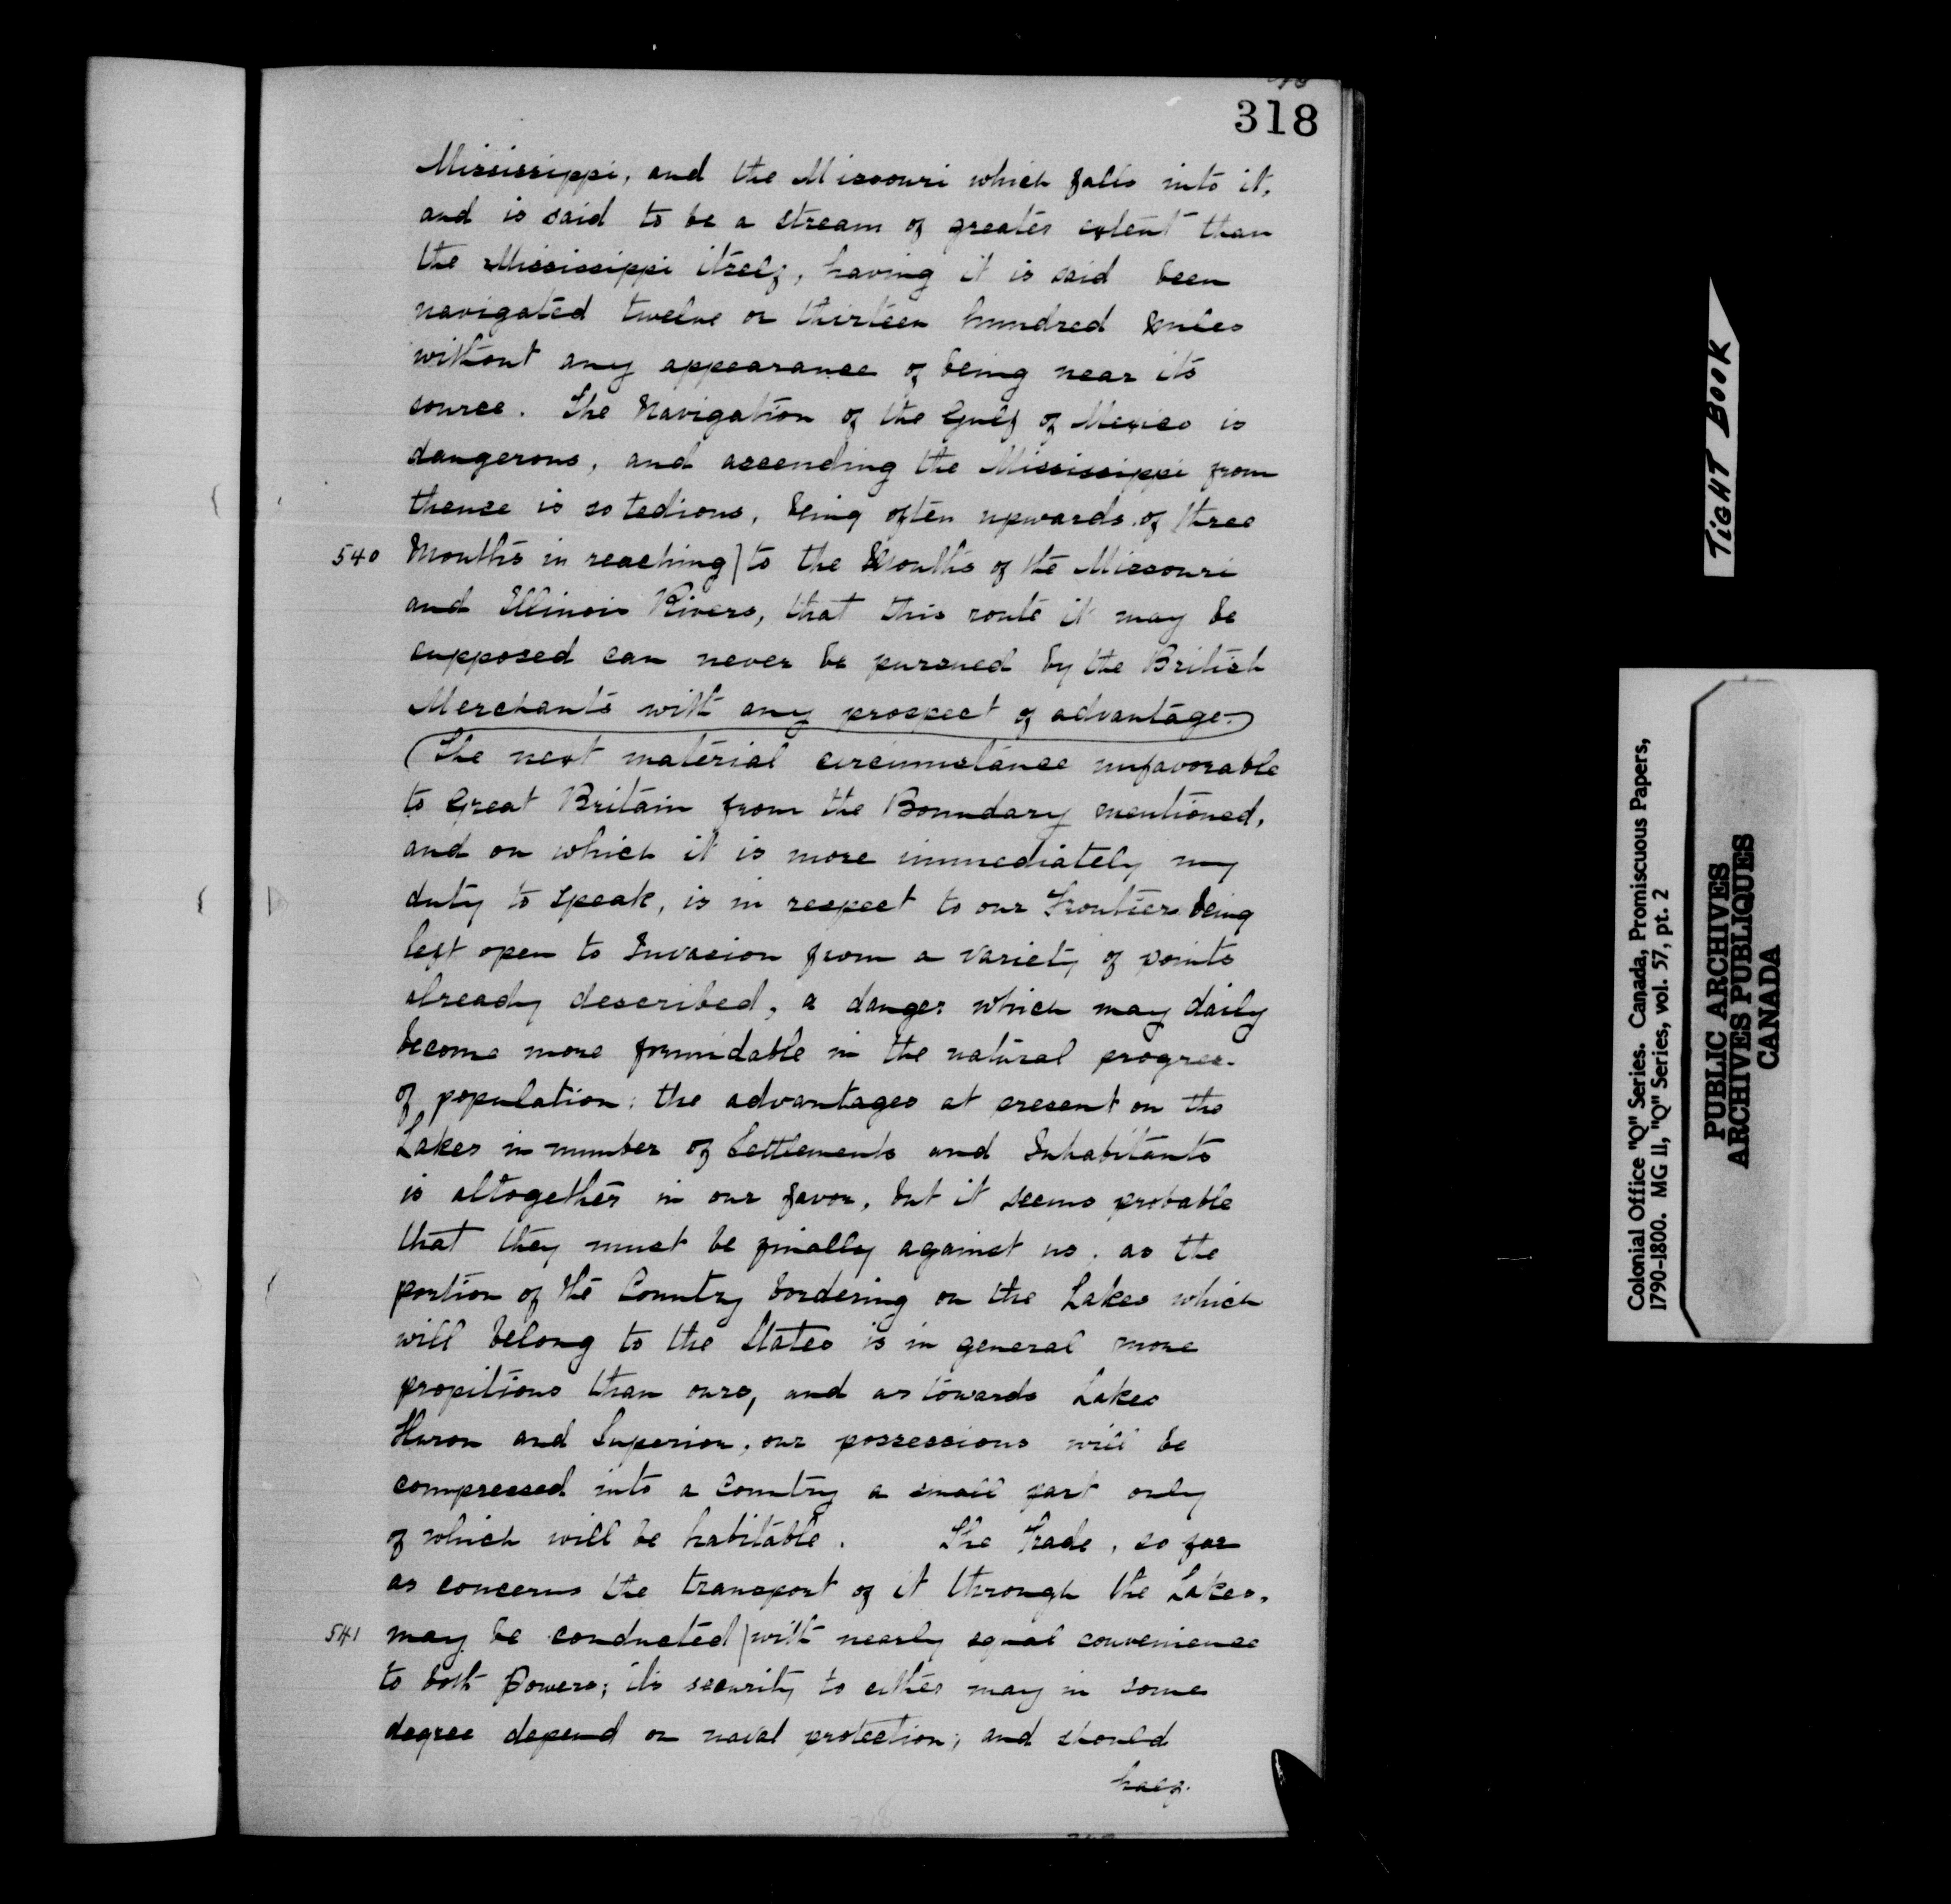 318
Mississippi, and the Missouri which falls into it,
and is said to be a stream of greater extent than
the Mississippi itself, having it is said been
navigated twelve or thirteen hundred Miles
without any appearance of being near its
source. The Navigation of the Gulf of Mexico is
dangerous, and ascending the Mississippi from
thence is so tedious, being often upwards of three
540 Months in reaching) to the Mouths of the Missouri
and Illinois Rivers, that this route it may be
supposed can never be pursued by the British
Merchants with any prospect of advantage.
(The next material circumstance unfavorable
to Great Britain from the Boundary mentioned,
and on which it is more immediately my
duty to speak, is in respect to our Frontier being
left open to Invasion from a variety of points
already described, a danger which may daily
become more formidable in the natural progress
of population: the advantages at present on the
Lakes in number of Settlements and Inhabitants
is altogether in our favor, but it seems probable
that they must be finally against us, as the
portion of the Country bordering on the Lakes which
will belong to the States is in general more
propitious than ours, and as towards Lakes
Huron and Superior, our possessions will be
compressed into a Country a small part only
of which will be habitable. The Trade, so far
as concerns the transport of it through the Lakes,
541 may be conducted) with nearly equal convenience
to both Powers; its security to either may in some
degree depend on naval protection; and should
TIGHT BOOK
Colonial Office "Q" Series. Canada, Promiscuous Papers,
1790-1800. MG 11, "Q" Series, vol. 57, pt. 2
PUBLIC ARCHIVES
ARCHIVES PUBLIQUES
CANADA